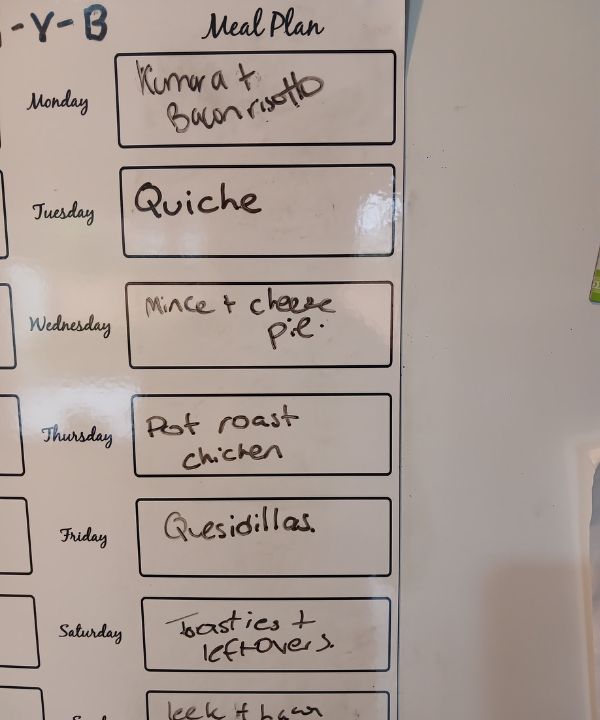 -Y-B
Meal Plan
Monday
Kumara +
Bacon risotto
Tuesday
Quiche
Wednesday
Mince + cheese
pie.
Thursday
Pot roast
chicken
Friday
Quesidillas.
Saturday
Toasties +
leftovers.
leek +